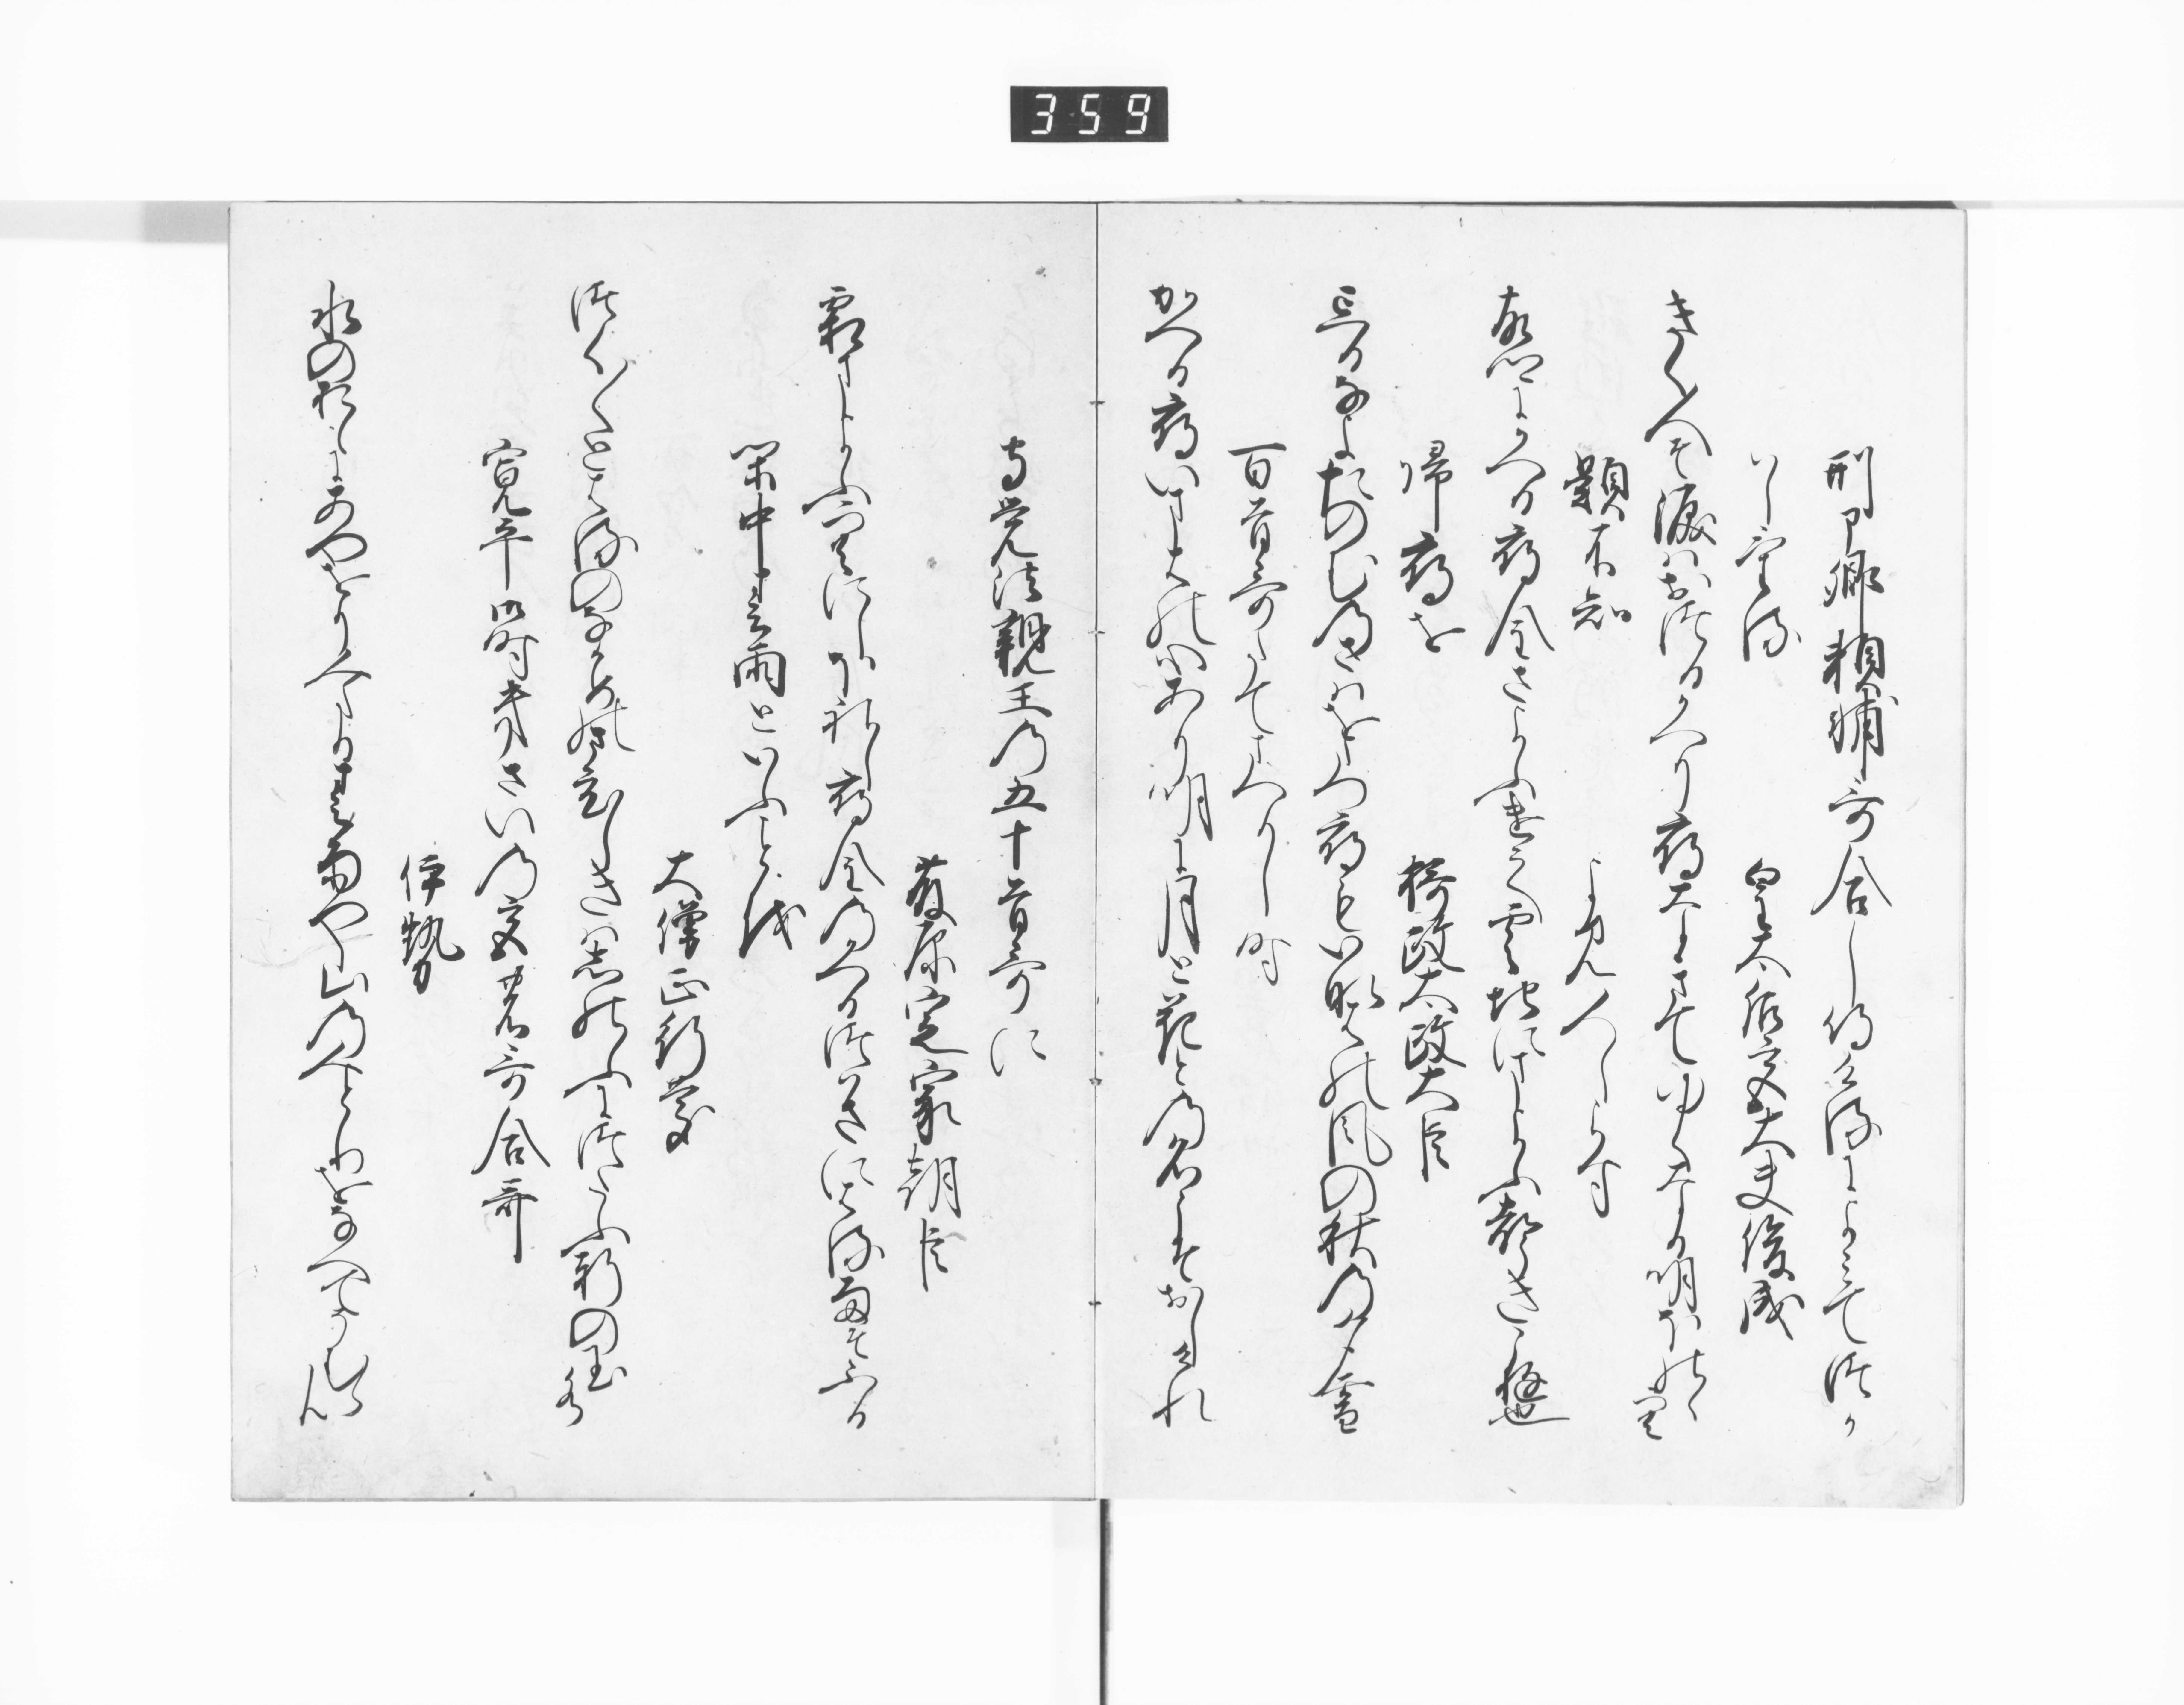 359
刑部卿頼輔哥合し侍けるによみてつか
はしける　皇太后宮大夫俊成
きく人そ涙はおつるかへり雁なきてゆくなる明ほのゝ空
題不知　よみ人しらす
故郷にかへる雁金さよふけて雲地にまよふ声きこゆ也
帰雁を　摂政太政大臣
忘るなよたのむのさはをたつ雁もいな葉の風の秋の夕暮
百首哥たてまつりし時
かへる雁いまはの心あり明に月と花との名こそおしけれ
守覚法親王の五十首哥に
藤原定家朝臣
霜まよふ空にしほれし雁金のかへるつはさに春雨そふる
閑中春雨といふことを
大僧正行慶
つく〳〵と春のなかめの寂しきは忍ふにつたふ軒の玉水
寛平御時きさいの宮の哥合哥
伊勢
水の面にあやをりみたる春雨や山のみとりをなへてそむらん